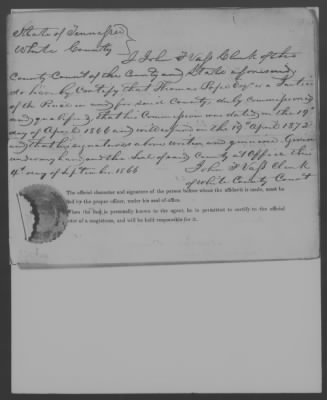 State of Tennessee
White County
I John F Vass Clerk of the
County Court of the County and State aforesaid,
do hereby Certify that Thomas Esqr is a Justice
of the Peace in and for said County, duly Commissioned
and qualified, that his Commission was dated on the 19th
day of April 1866 and will expire on the 19th April 1872
and that his signatures above written are genuine. Given
under my hand and the Seal of said County at Office this
4th day of September 1866
John F Vass Clerk
of White County Court
The official character and signature of the person before whom the affidavit is made, must be
fied by the proper officer, under his seal of office.
When the is personally known to the agent, he is permitted to certify to the official
cter of a magistrate, and will be held responsible for it.